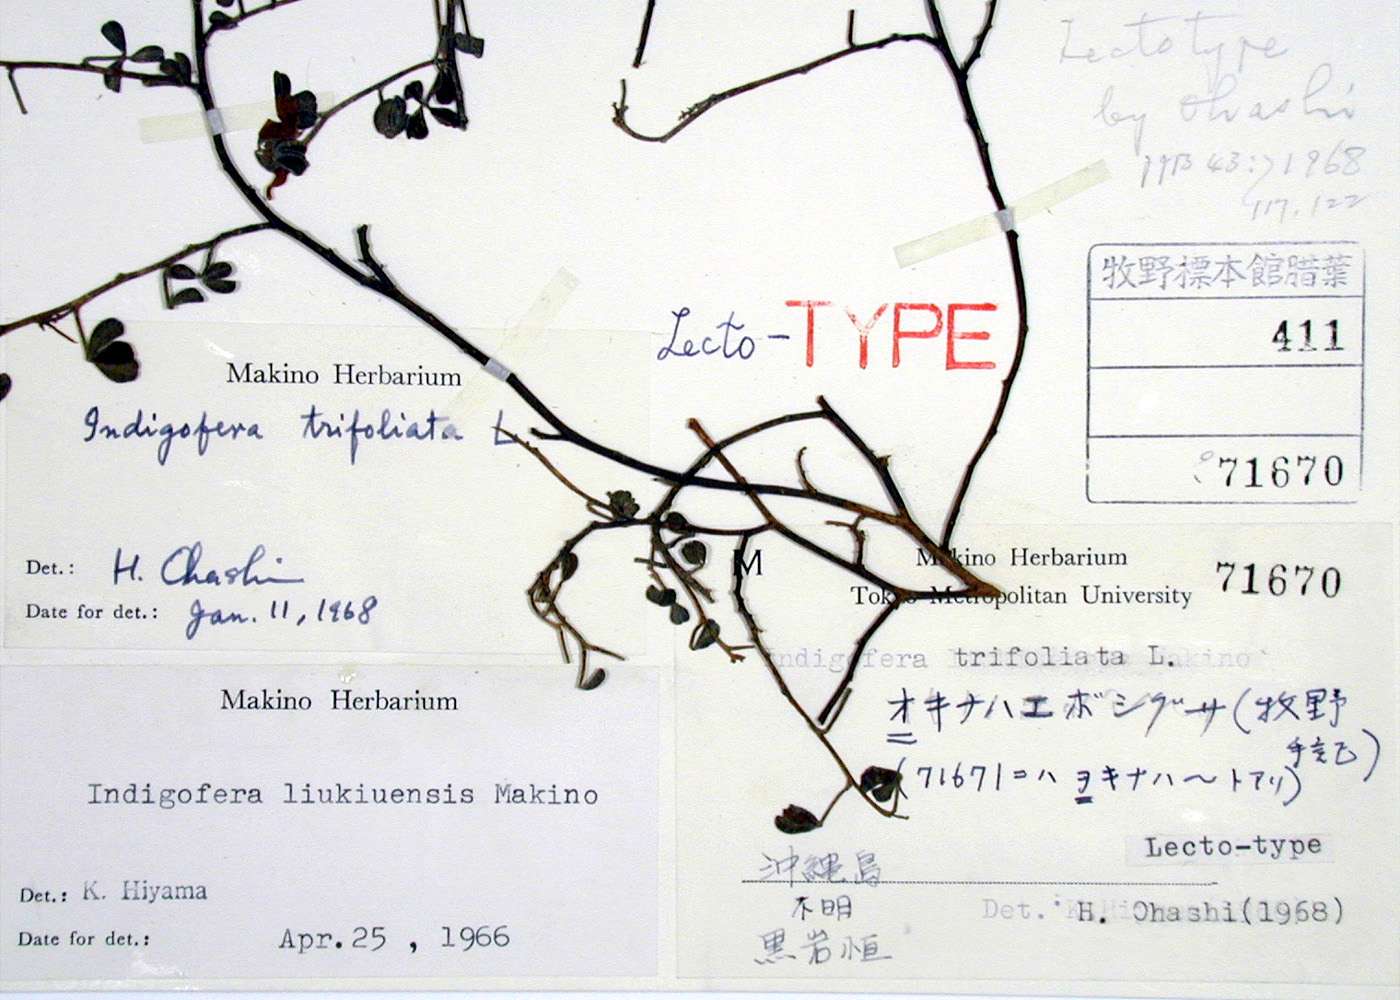 Lectotype
by Ohashi
43: 1968
117. 122
牧野標本館腊葉
411
71670
Lecto-TYPE
Makino Herbarium
Indigofera trifoliata L.
Det.: H. Ohashi
Date for det.: Jan. 11, 1968
Makino Herbarium
Indigofera liukiuensis Makino
Det.: K. Hiyama
Date for det.: Apr. 25 , 1966
M
Makino Herbarium 71670
Tokyo Metropolitan University
Indigofera trifoliata L.
オキナハエボシグサ(牧野
手記)
(71671ニハヲキナハ〜トアリ)
Lecto-type
沖縄島
不明
Det. H. Ohashi(1968)
黒岩恒